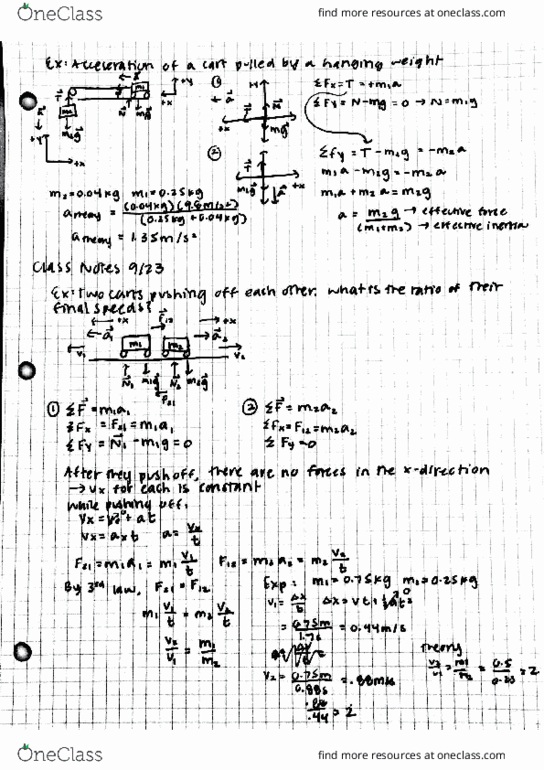 OneClass
find more resources at oneclass.com
Ex: Acceleration of a cart pulled by a hanging weight
① ΣFx = T = +m₁a
ΣFy = N - mg = 0 → N = m₁g
② ΣFy = T - m₂g = -m₂a
m₁a - m₂g = -m₂a
m₁a + m₂a = m₂g
a = m₂g / (m₁+m₂) → effective force → effective inertia
m₂ = 0.04kg m₁ = 0.25kg
atheory = (0.04kg)(9.8m/s²) / (0.25kg + 0.04kg)
atheory = 1.35m/s²
Class Notes 9/23
Ex: Two carts pushing off each other. What is the ratio of their
final speeds?
① ΣF = m₁a₁
ΣFx = F₂₁ = m₁a₁
ΣFy = N₁ - m₁g = 0
② ΣF = m₂a₂
ΣFx = F₁₂ = m₂a₂
ΣFy = 0
After they push off, there are no forces in the x-direction
→ Vx for each is constant
While pushing off,
Vx = V₀ + at
Vx = axt a = Vx/t
F₂₁ = m₁a₁ = m₁ V₁/t F₁₂ = m₂a₂ = m₂ V₂/t
By 3rd law, F₂₁ = F₁₂
m₁ V₁/t = m₂ V₂/t
V₂/V₁ = m₁/m₂
Exp:
V₁ = Δx/t Δx = Vt + ½at²
= 0.75m / 1.7s = 0.44m/s
V₂ = 0.75m / 0.88s = .88m/s
.88/.44 = 2
Theory
V₂/V₁ = m₁/m₂ = 0.5/0.25 = 2
OneClass
find more resources at oneclass.com